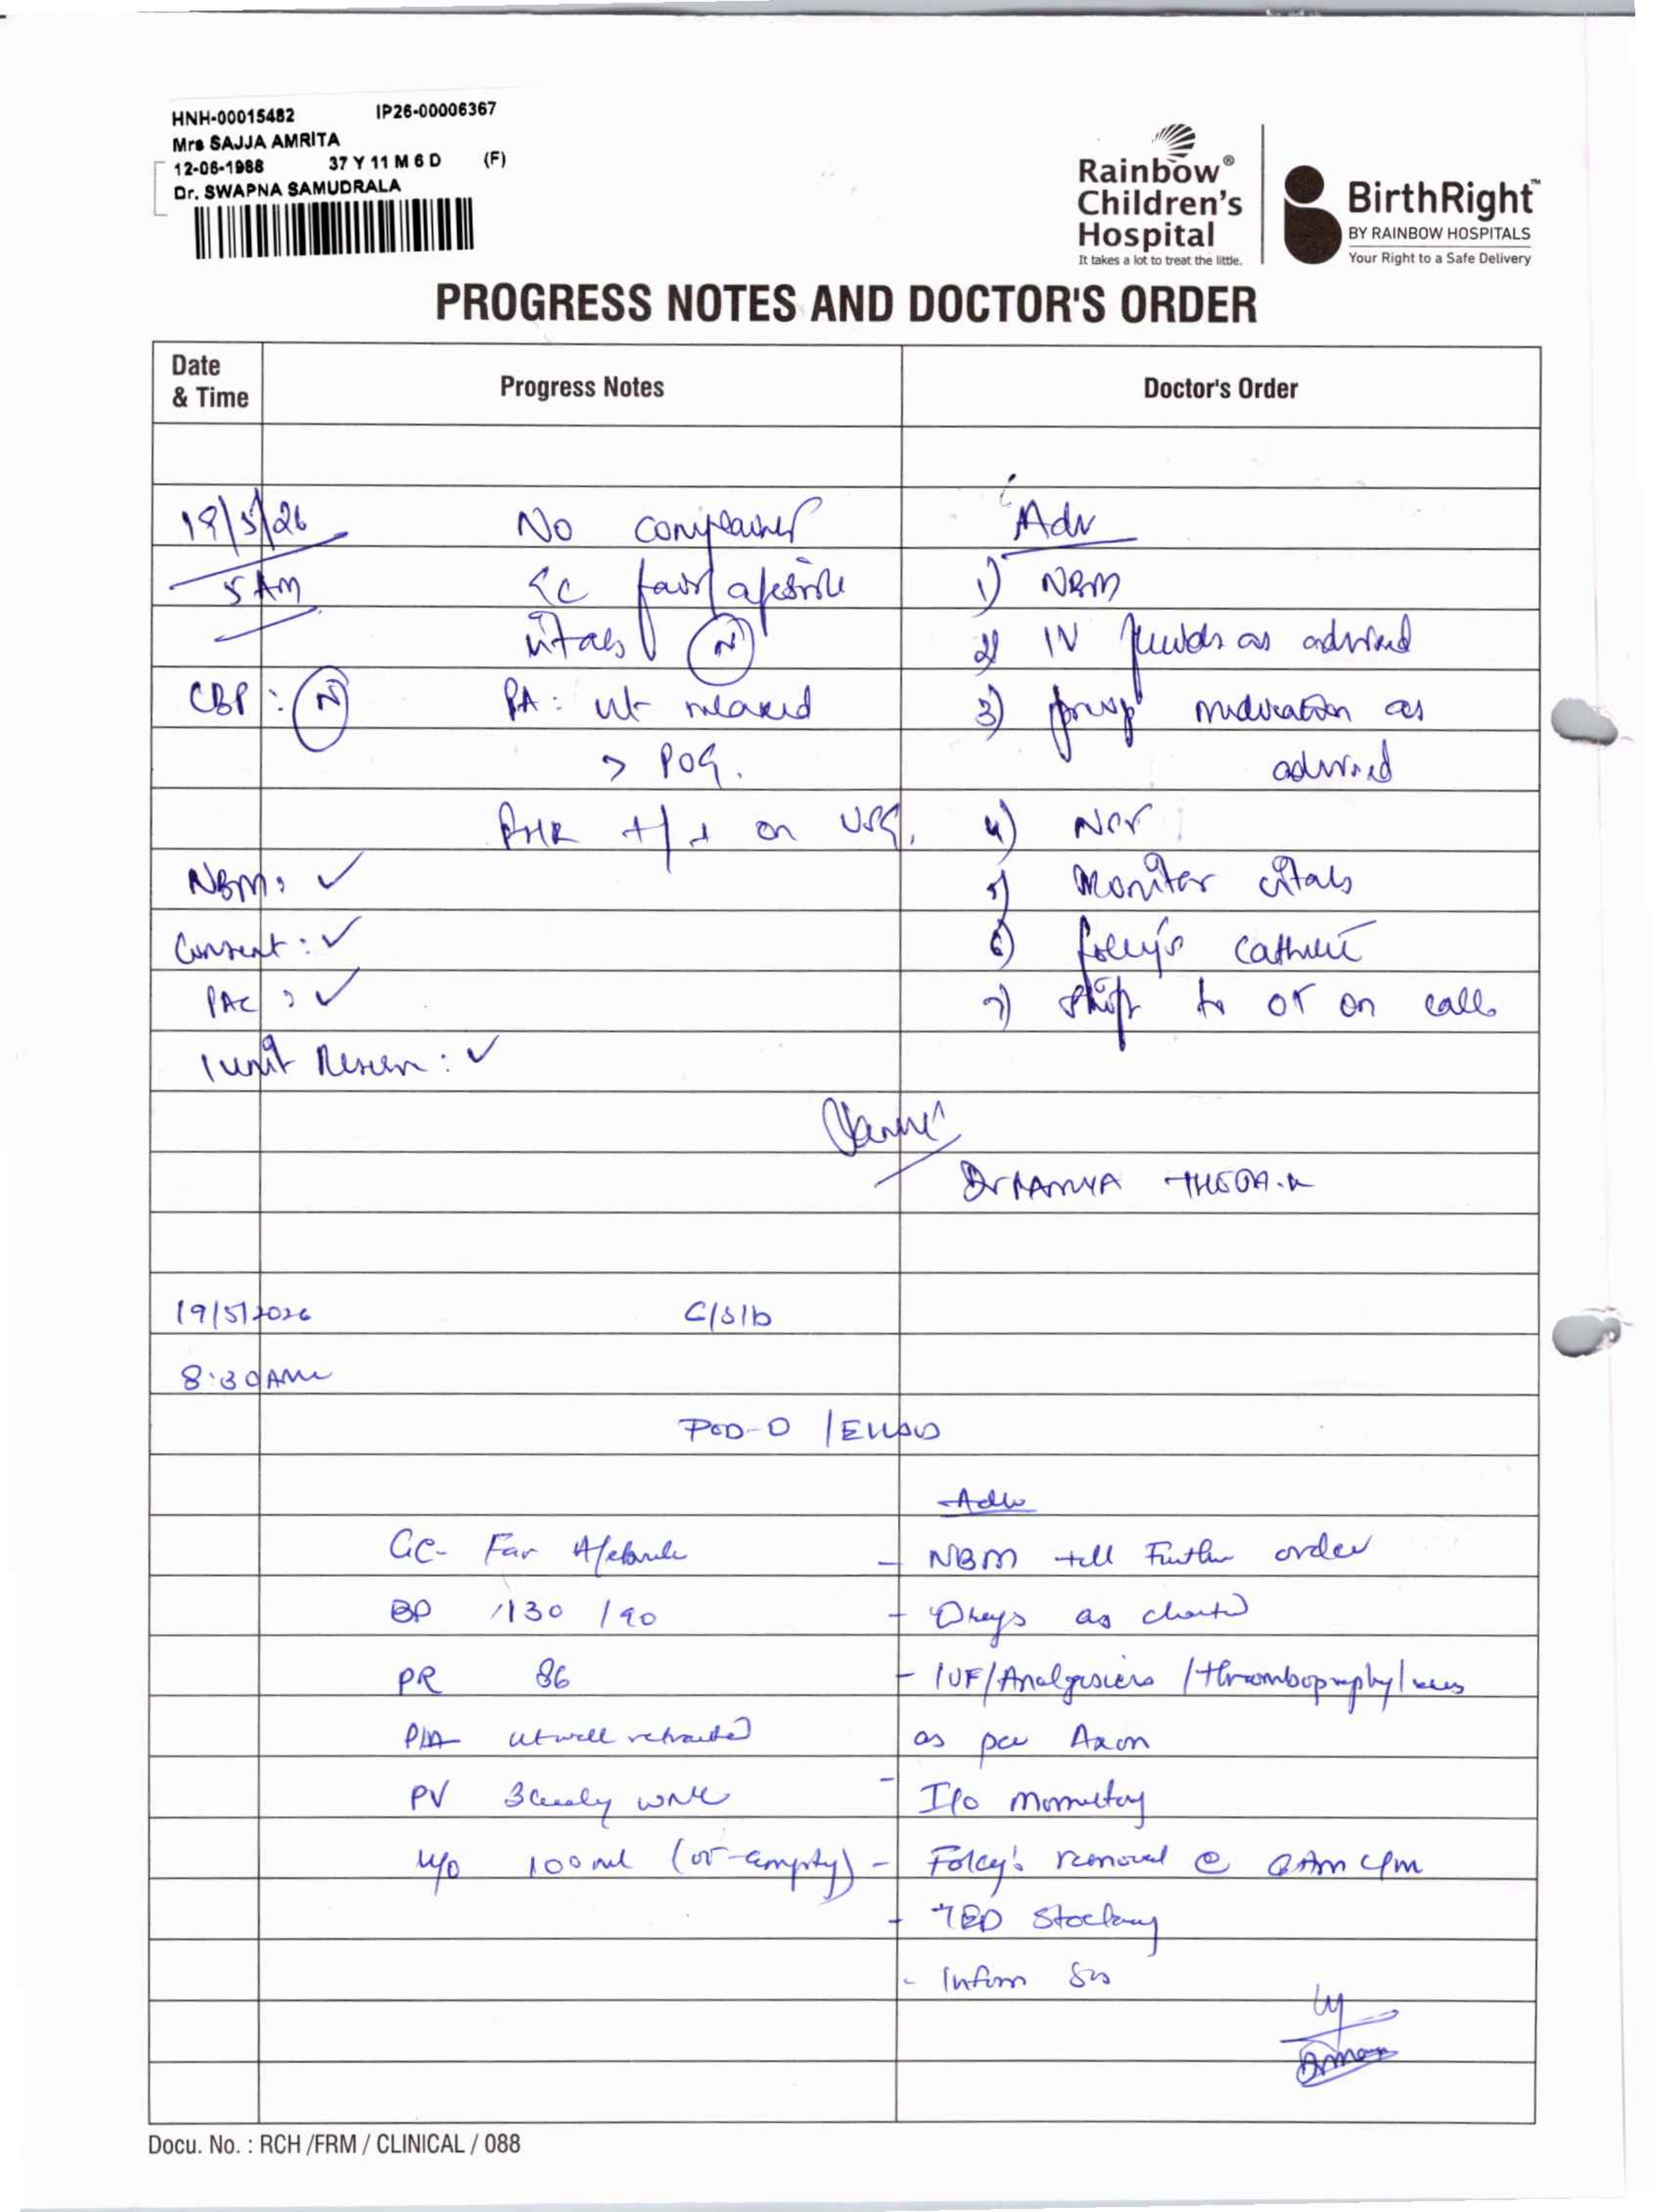 HNH-00015482 IP26-00006367
Mrs SAJJA AMRITA
12-06-1988 37 Y 11 M 6 D (F)
Dr. SWAPNA SAMUDRALA
Rainbow®
Children's
Hospital
It takes a lot to treat the little.
BirthRight™
BY RAINBOW HOSPITALS
Your Right to a Safe Delivery
PROGRESS NOTES AND DOCTOR'S ORDER
Date
& Time
Progress Notes
Doctor's Order
19/5/26 No complaints Adv
5 AM GC fair/afebrile 1) NBM
vitals (N) 2) IV fluids as advised
CBP : (N) PA : ut relaxed 3) preop medication as
> POG. advised
FHR +/+ on USG. 4) NST
NBM: ✓ 5) Monitor vitals
Consent : ✓ 6) foley's catheter
PAC : ✓ 7) shift to OT on call
1 unit Reserve : ✓
Dr
19/5/2026 C/S/b
8:30 AM
POD-0 /
Adv
GC- Fair Afebrile - NBM till Further order
BP 130 / 90 - Drugs as charted
PR 86 - IVF/Analgesics /thromboprophylaxis
P/A ut well retracted as per Axon
PV Bleeding WNL - I/O monitoring
U/O 100 ml (OT-empty) - Foley's removal @ 6AM c/m
- TED Stocking
- Inform SOS
Docu. No. : RCH /FRM / CLINICAL / 088